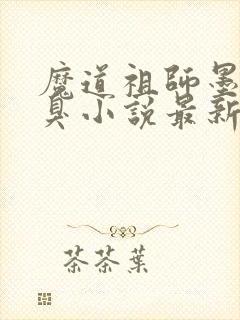 魔道祖師墨
臭小說最新
茶茶葉